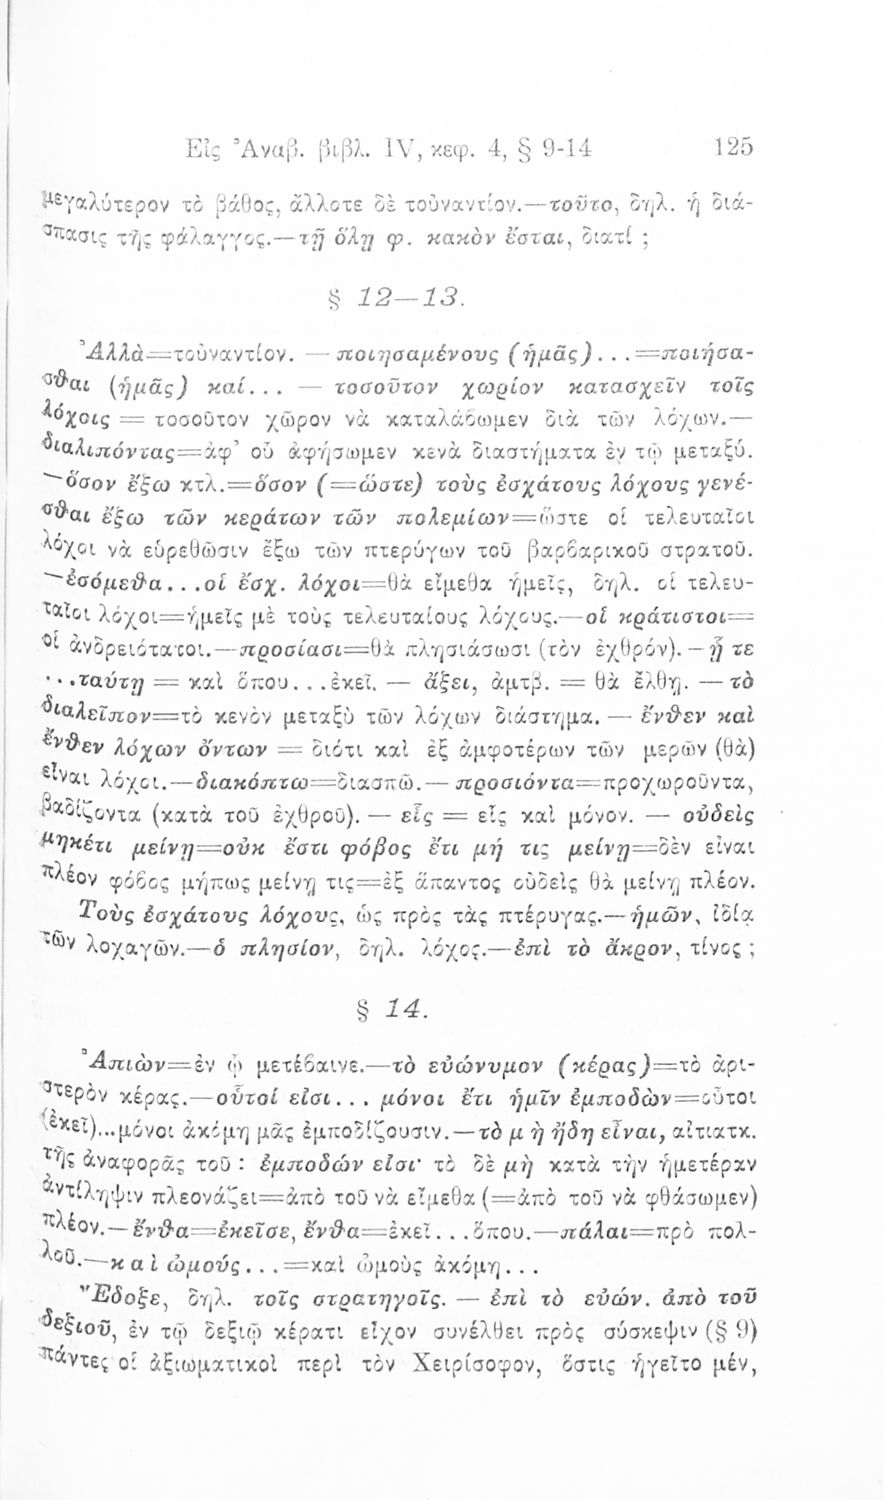 Εἰς Ἀναβ. βιβλ. IV, κεφ. 4, § 9-14 125
μεγαλύτερον τὸ βάθος, ἄλλοτε δὲ τοὐναντίον.—τοῦτο, δηλ. ἡ διά-
σπασις τῆς φάλαγγος.—τῇ ὅλῃ φ. κακὸν ἔσται, διατί ;
§ 12—13.
Ἀλλὰ=τοὐναντίον. — ποιησαμένους (ἡμᾶς)...=ποιήσα-
σθαι (ἡμᾶς) καί... — τοσοῦτον χωρίον κατασχεῖν τοῖς
λόχοις = τοσοῦτον χῶρον νὰ καταλάβωμεν διὰ τῶν λόχων.—
διαλιπόντας=ἀφ’ οὗ ἀφήσωμεν κενὰ διαστήματα ἐν τῷ μεταξύ.
—ὅσον ἔξω κτλ.=ὅσον (=ὥστε) τοὺς ἐσχάτους λόχους γενέ-
σθαι ἔξω τῶν κεράτων τῶν πολεμίων=ὥστε οἱ τελευταῖοι
λόχοι νὰ εὑρεθῶσιν ἔξω τῶν πτερύγων τοῦ βαρβαρικοῦ στρατοῦ.
—ἐσόμεθα...οἱ ἔσχ. λόχοι=θὰ εἴμεθα ἡμεῖς, δηλ. οἱ τελευ-
ταῖοι λόχοι=ἡμεῖς μὲ τοὺς τελευταίους λόχους.—οἱ κράτιστοι=
οἱ ἀνδρειότατοι.—προσίασι=θὰ πλησιάσωσι (τὸν ἐχθρόν).—ᾗ τε
...ταύτῃ = καὶ ὅπου...ἐκεῖ. — ἄξει, ἀμτβ. = θὰ ἔλθῃ. —τὸ
διαλεῖπον=τὸ κενὸν μεταξὺ τῶν λόχων διάστημα. — ἔνθεν καὶ
ἔνθεν λόχων ὄντων = διότι καὶ ἐξ ἀμφοτέρων τῶν μερῶν (θὰ)
εἶναι λόχοι.—διακόπτω=διασπῶ.— προσιόντα=προχωροῦντα,
βαδίζοντα (κατὰ τοῦ ἐχθροῦ). — εἷς = εἷς καὶ μόνον. — οὐδεὶς
μηκέτι μείνῃ=οὐκ ἔστι φόβος ἔτι μή τις μείνῃ=δὲν εἶναι
πλέον φόβος μήπως μείνῃ τις=ἐξ ἅπαντος οὐδεὶς θὰ μείνῃ πλέον.
Τοὺς ἐσχάτους λόχους, ὡς πρὸς τὰς πτέρυγας.—ἡμῶν, ἰδίᾳ
τῶν λοχαγῶν.—ὁ πλησίον, δηλ. λόχος.—ἐπὶ τὸ ἄκρον, τίνος ;
§ 14.
Ἀπιὼν=ἐν ᾧ μετέβαινε.—τὸ εὐώνυμον (κέρας)=τὸ ἀρι-
στερὸν κέρας.—οὗτοί εἰσι... μόνοι ἔτι ἡμῖν ἐμποδὼν=οὗτοι
(ἐκεῖ)...μόνοι ἀκόμη μᾶς ἐμποδίζουσιν.—τὸ μὴ ἤδη εἶναι, αἰτιατκ.
τῆς ἀναφορᾶς τοῦ : ἐμποδών εἰσι· τὸ δὲ μὴ κατὰ τὴν ἡμετέραν
ἀντίληψιν πλεονάζει=ἀπὸ τοῦ νὰ εἴμεθα (=ἀπὸ τοῦ νὰ φθάσωμεν)
πλέον.—ἔνθα=ἐκεῖσε, ἔνθα=ἐκεῖ...ὅπου.—πάλαι=πρὸ πολ-
λοῦ.—καὶ ὠμούς...=καὶ ὠμοὺς ἀκόμη...
Ἔδοξε, δηλ. τοῖς στρατηγοῖς. — ἐπὶ τὸ εὐών. ἀπὸ τοῦ
δεξιοῦ, ἐν τῷ δεξιῷ κέρατι εἶχον συνέλθει πρὸς σύσκεψιν (§ 9)
πάντες οἱ ἀξιωματικοὶ περὶ τὸν Χειρίσοφον, ὅστις ἡγεῖτο μέν,